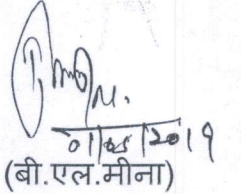 01/05/2019
(बी.एल.मीना)